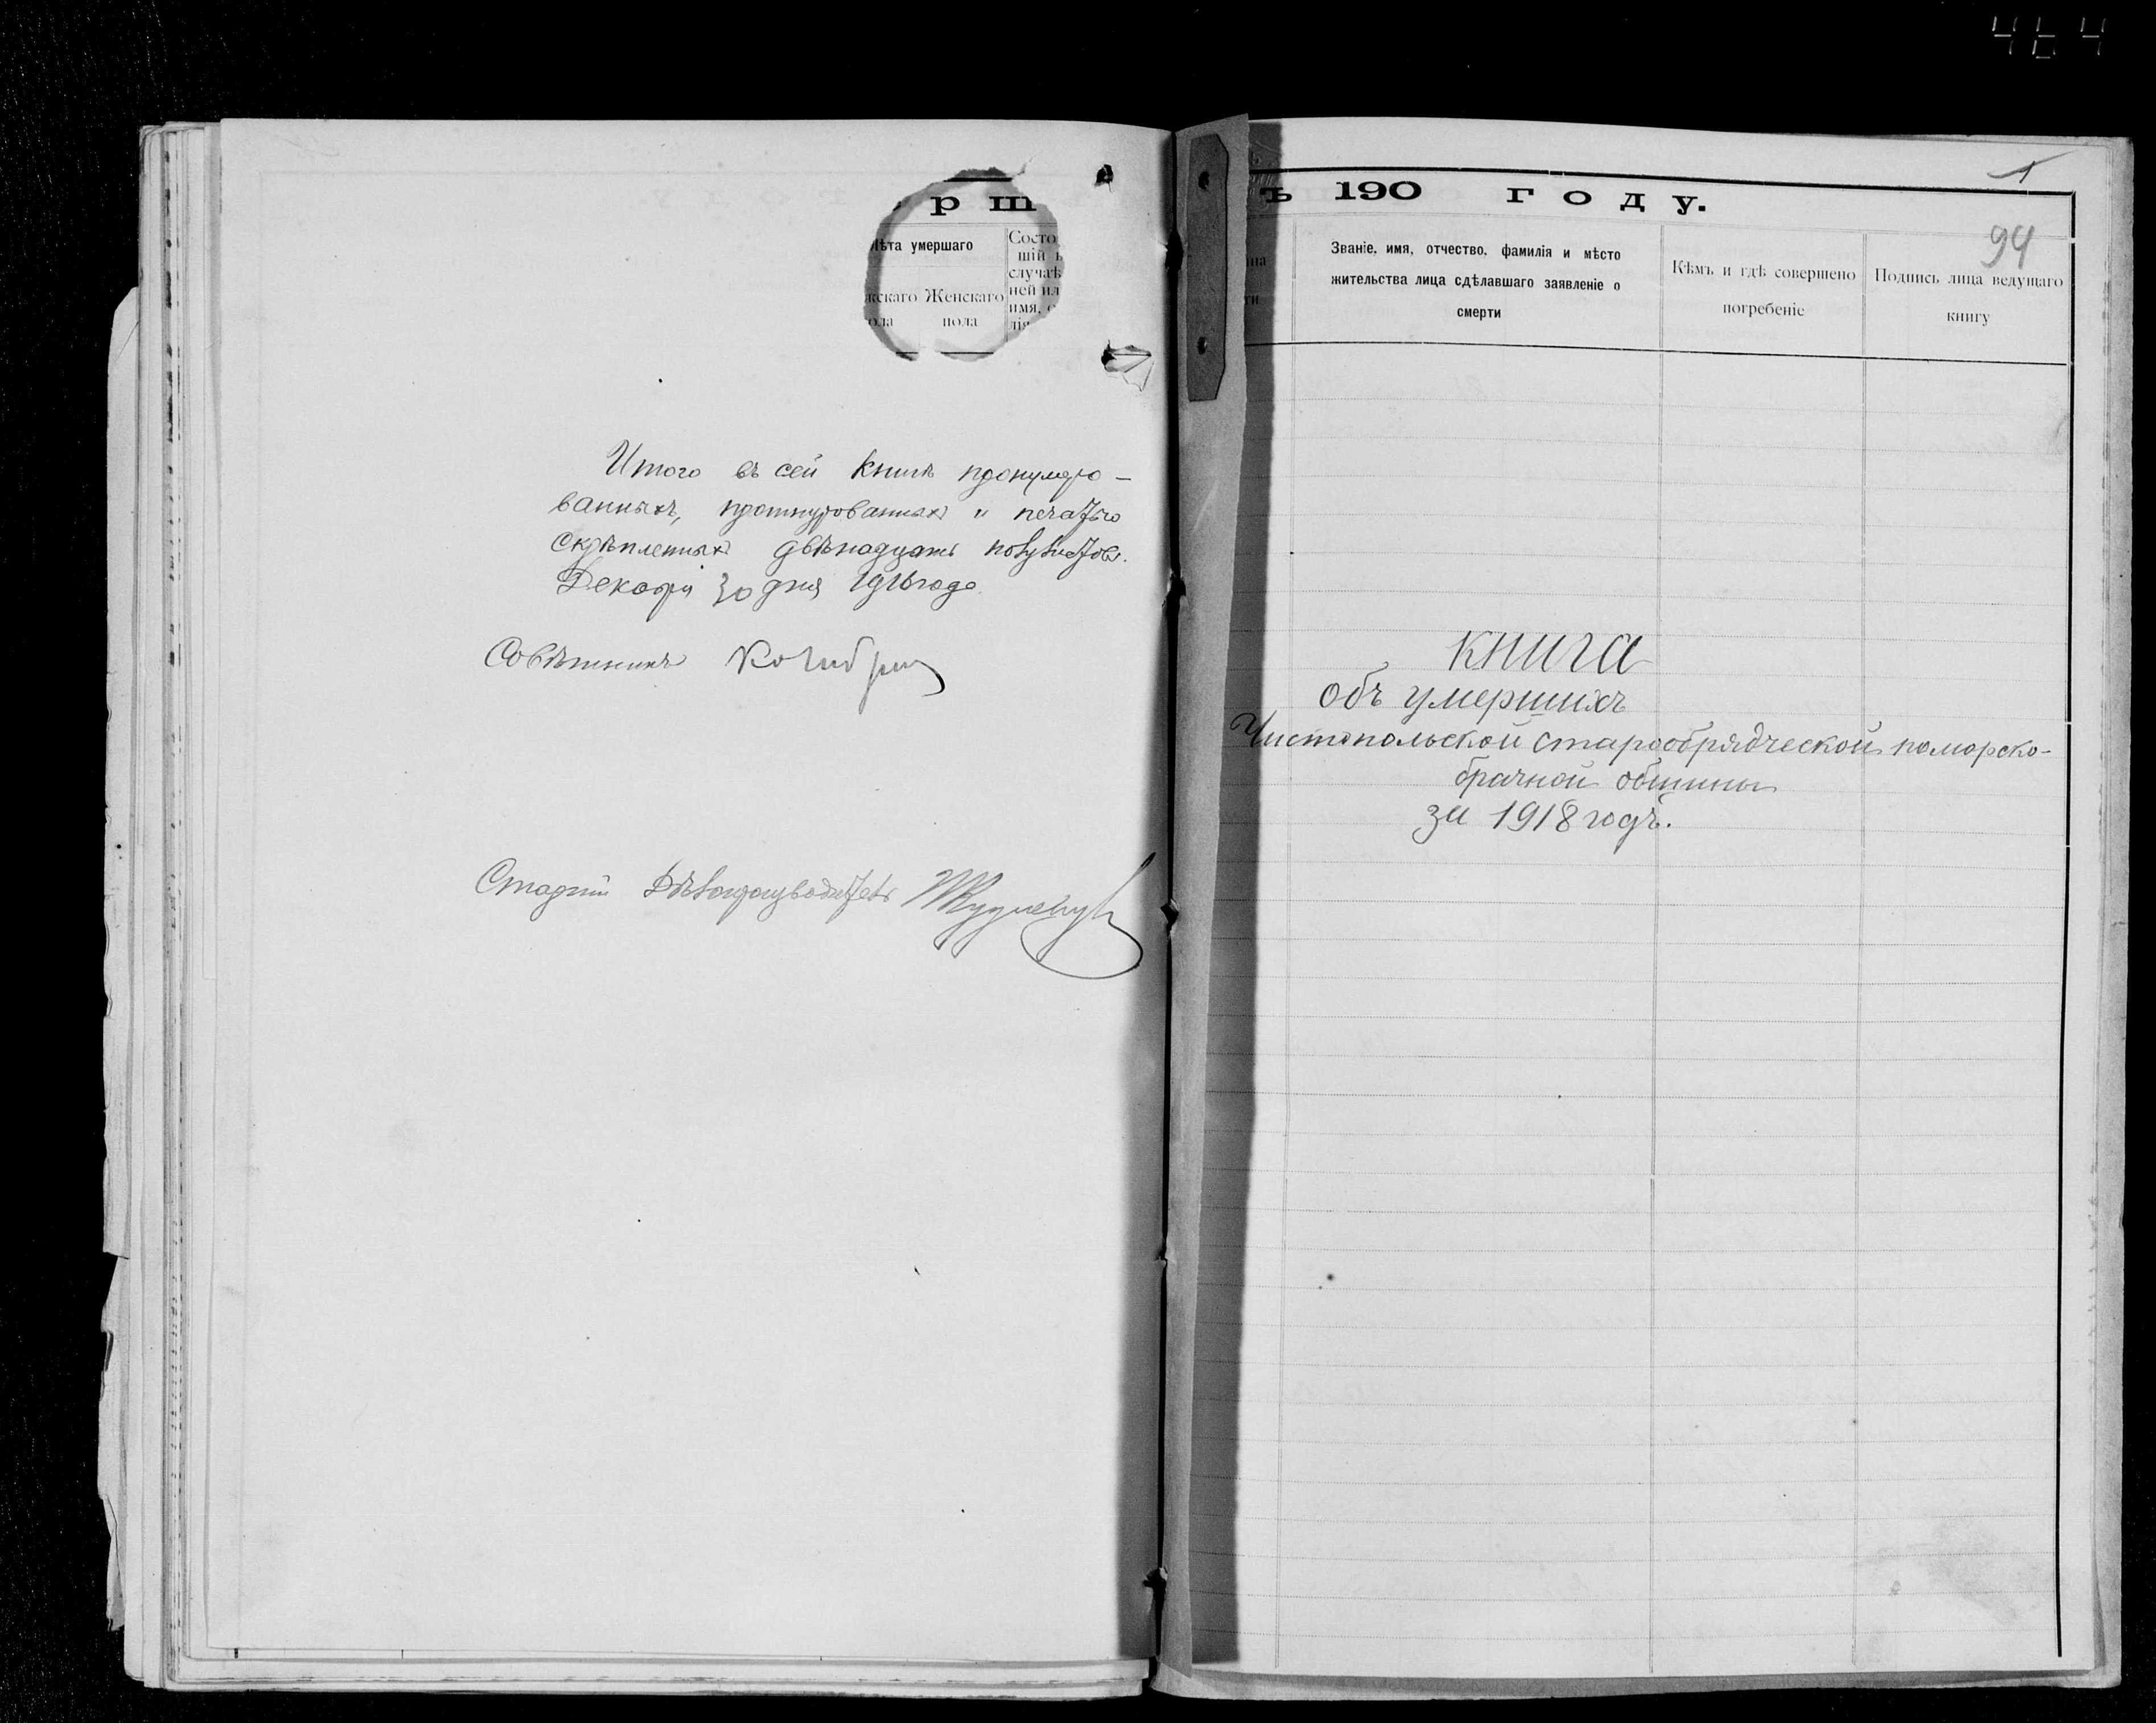 рш
лѣта умершаго
Состо
шій
случаѣ
ней ил
имя,
Женскаго
пола
Итого въ сей книгѣ пронумеро-
ванныхъ, прошнурованныхъ и печатью
скрѣпленныхъ двѣнадцать полулистовъ.
Декабря 30 дня 1916 года
Совѣтникъ
Старшій Дѣлопроизводитель
464
1
ъ 190 году.
94
Званіе, имя, отчество, фамилія и мѣсто
жительства лица сдѣлавшаго заявленіе о
смерти
Кѣмъ и гдѣ совершено
погребеніе
Подпись лица ведущаго
книгу
книга
объ умершихъ
Чистопольской старообрядческой поморско-
брачной общины
за 1918 годъ.